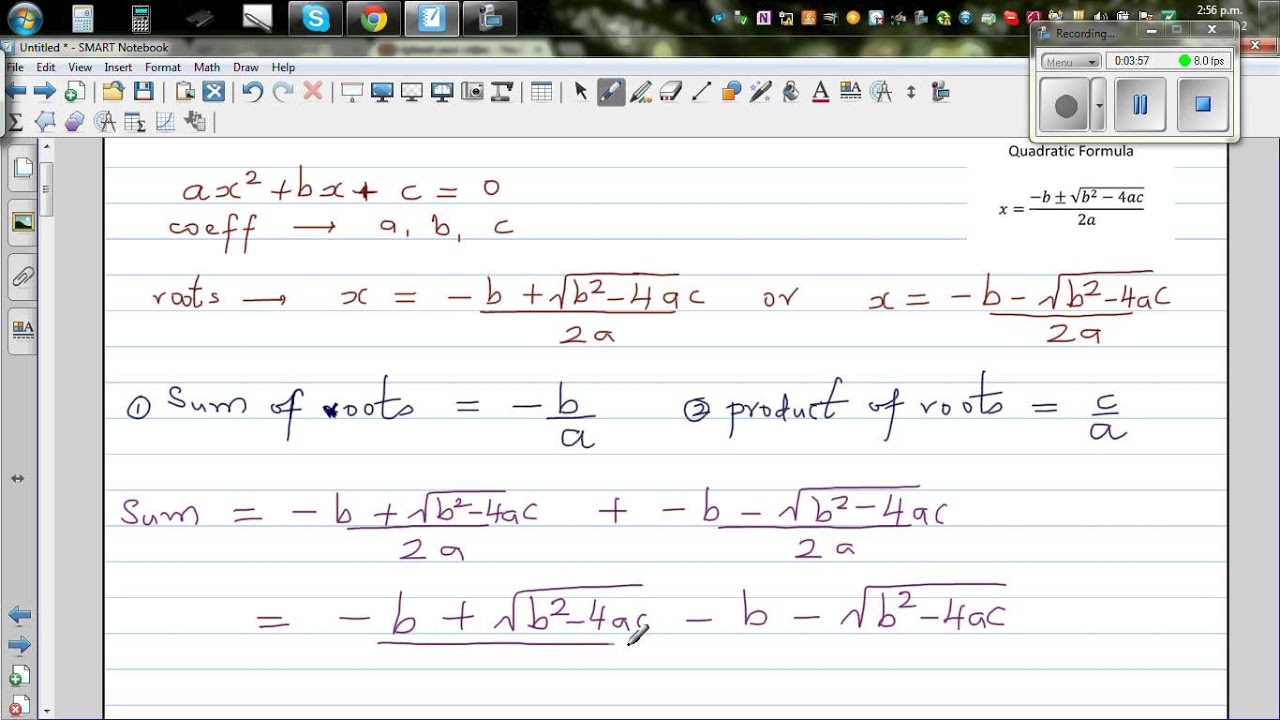 2:56 p.m.
Untitled * - SMART Notebook
Recording...
File Edit View Insert Format Math Draw Help
Menu 0:03:57 8.0 fps
Quadratic Formula
x = (-b ± √(b² - 4ac))/(2a)
ax² + bx + c = 0
coeff → a, b, c
roots → x = (-b + √(b² - 4ac))/(2a) or x = (-b - √(b² - 4ac))/(2a)
① Sum of roots = -b/a ② product of roots = c/a
Sum = (-b + √(b² - 4ac))/(2a) + (-b - √(b² - 4ac))/(2a)
= -b + √(b² - 4ac) - b - √(b² - 4ac)